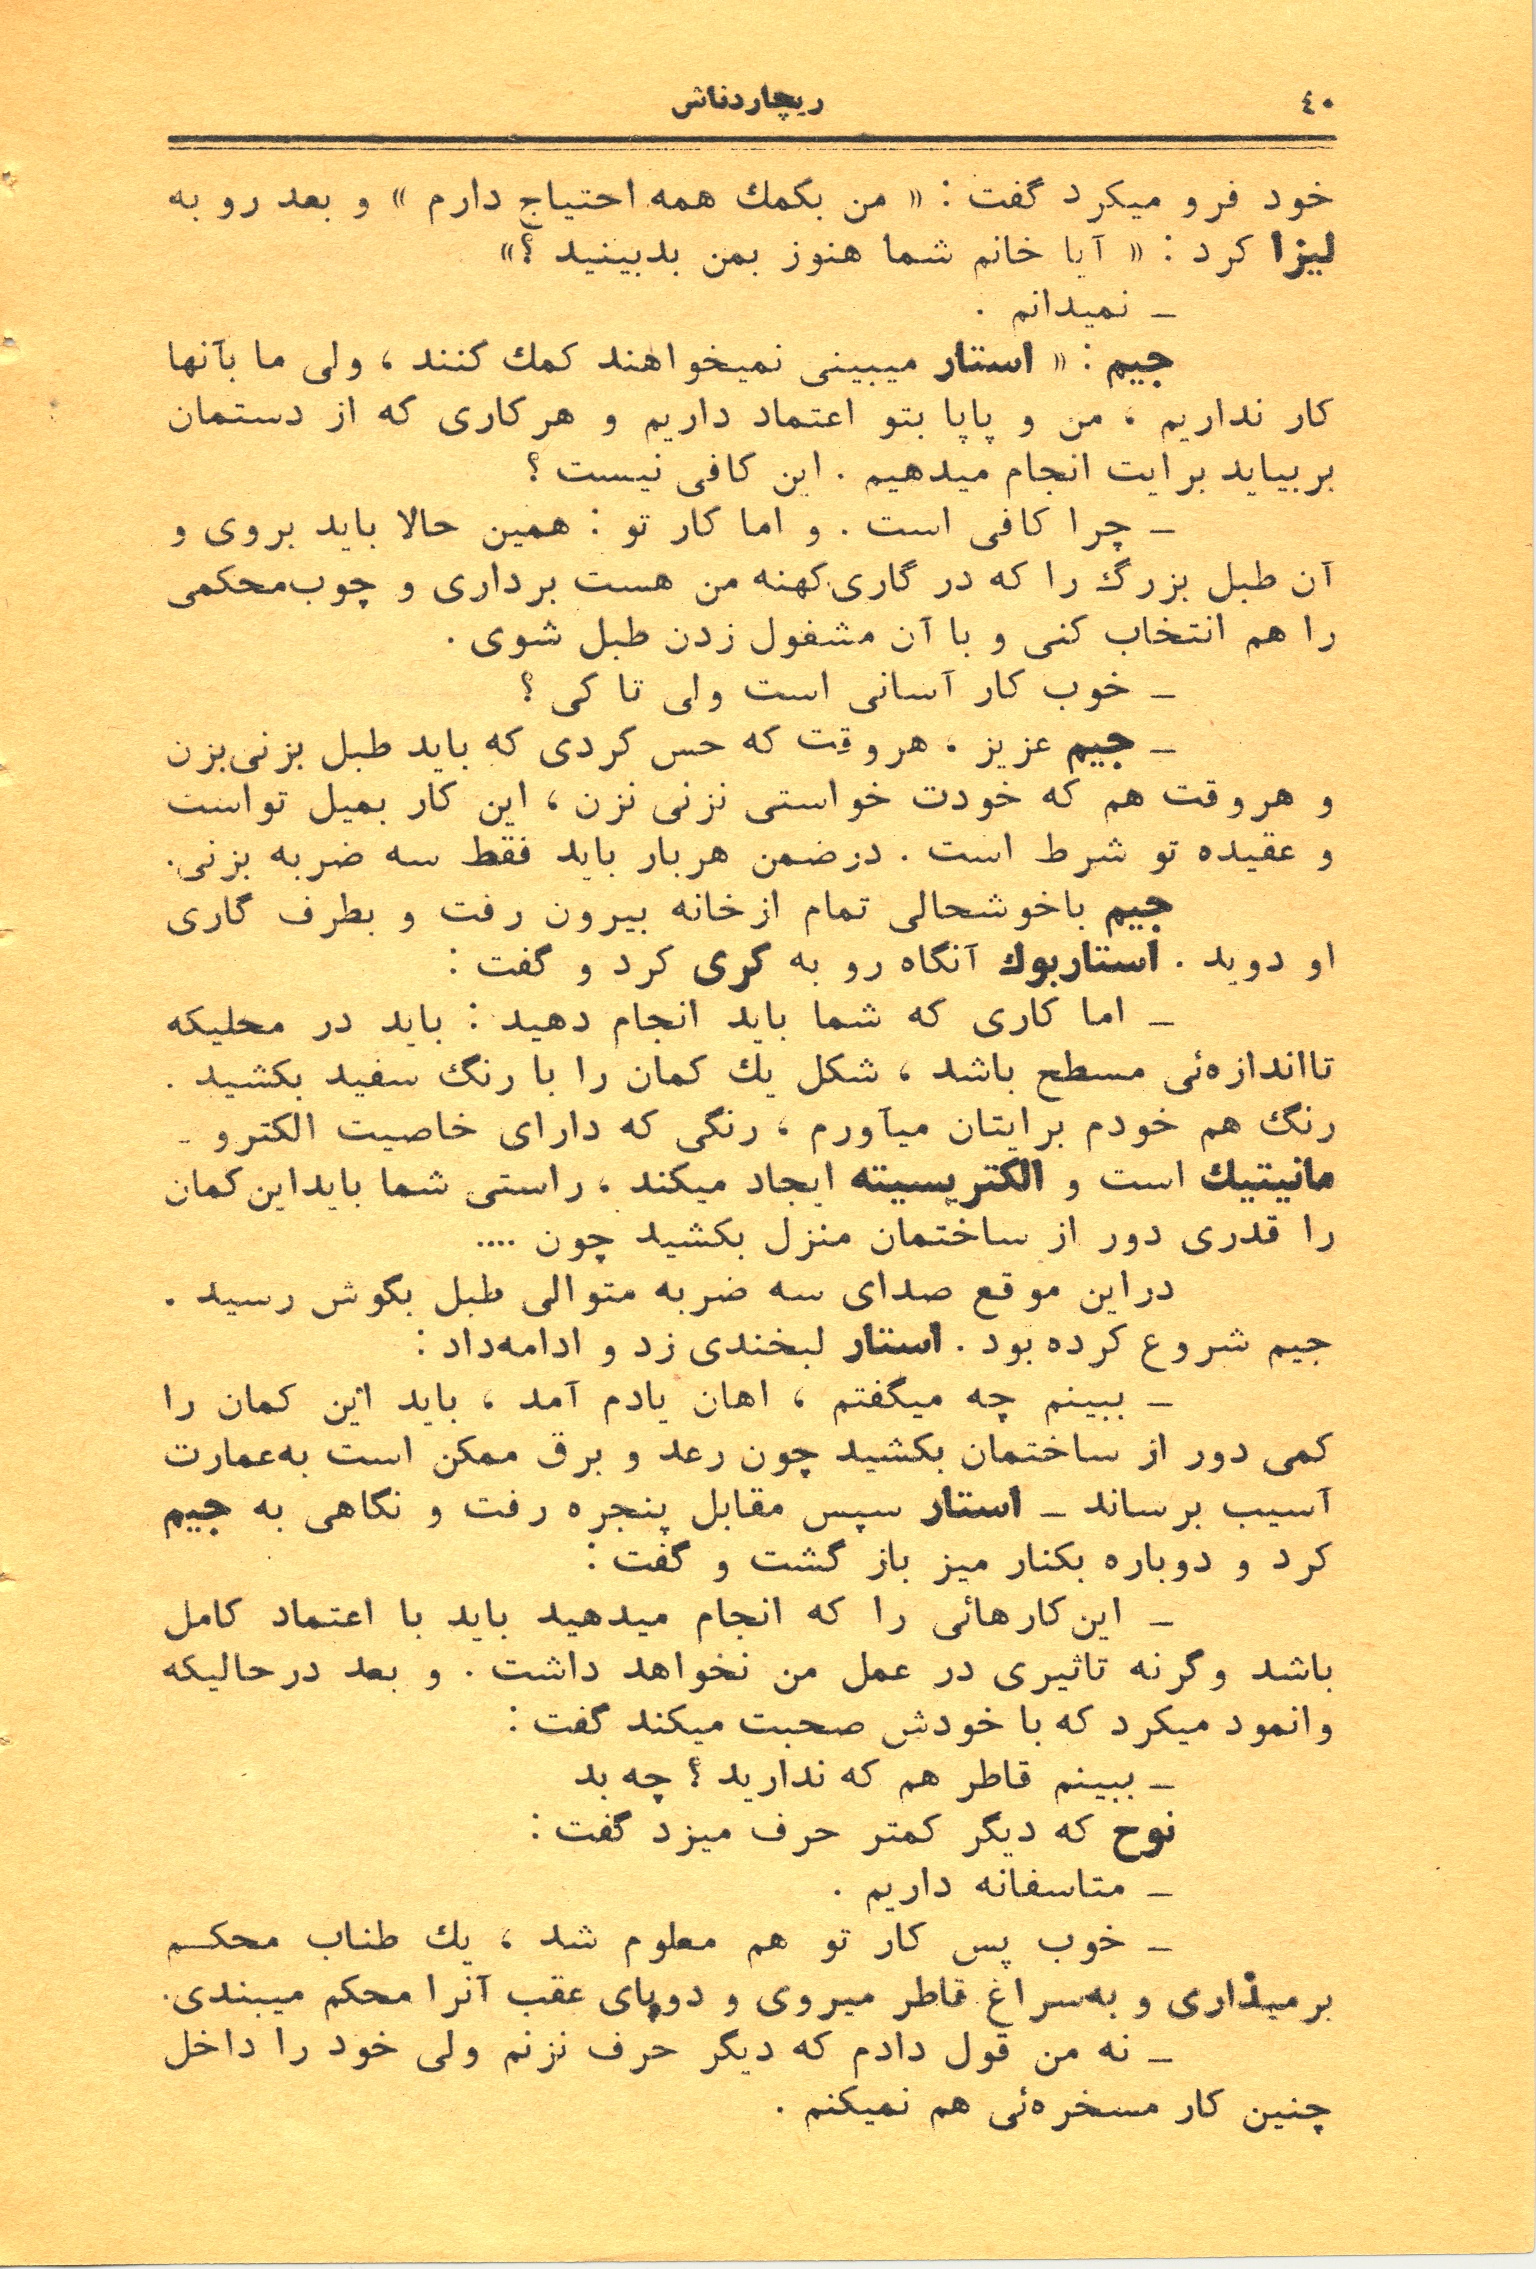 ٤٠
ریچاردناش
خود فرو میکرد گفت : « من بکمك همه احتیاج دارم » و بعد رو به
لیزا کرد : « آیا خانم شما هنوز بمن بدبینید ؟»
ـ نمیدانم .
جیم : « استار میبینی نمیخواهند کمك کنند ، ولی ما بآنها
کار نداریم ، من و پاپا بتو اعتماد داریم و هرکاری که از دستمان
بربیاید برایت انجام میدهیم . این کافی نیست ؟
ـ چرا کافی است . و اما کار تو : همین حالا باید بروی و
آن طبل بزرگ را که در گاری کهنه من هست برداری و چوب‌محکمی
را هم انتخاب کنی و با آن مشغول زدن طبل شوی .
ـ خوب کار آسانی است ولی تا کی ؟
ـ جیم عزیز ، هروقت که حس کردی که باید طبل بزنی‌بزن
و هروقت هم که خودت خواستی نزنی نزن ، این کار بمیل تواست
و عقیده تو شرط است . درضمن هربار باید فقط سه ضربه بزنی.
جیم باخوشحالی تمام ازخانه بیرون رفت و بطرف گاری
او دوید . استاربوك آنگاه رو به کری کرد و گفت :
ـ اما کاری که شما باید انجام دهید : باید در محلیکه
تااندازه‌ئی مسطح باشد ، شکل یك کمان را با رنگ سفید بکشید .
رنگ هم خودم برایتان میآورم ، رنگی که دارای خاصیت الکترو ـ
مانیتیك است و الکتریسیته ایجاد میکند ، راستی شما بایداین کمان
را قدری دور از ساختمان منزل بکشید چون ....
دراین موقع صدای سه ضربه متوالی طبل بگوش رسید .
جیم شروع کرده بود . استار لبخندی زد و ادامه‌داد :
ـ ببینم چه میگفتم ، اهان یادم آمد ، باید این کمان را
کمی دور از ساختمان بکشید چون رعد و برق ممکن است به‌عمارت
آسیب برساند ـ استار سپس مقابل پنجره رفت و نگاهی به جیم
کرد و دوباره بکنار میز باز گشت و گفت :
ـ این‌کارهائی را که انجام میدهید باید با اعتماد کامل
باشد وگرنه تاثیری در عمل من نخواهد داشت . و بعد درحالیکه
وانمود میکرد که با خودش صحبت میکند گفت :
ـ ببینم قاطر هم که ندارید ؟ چه بد
نوح که دیگر کمتر حرف میزد گفت :
ـ متاسفانه داریم .
ـ خوب پس کار تو هم معلوم شد ، یك طناب محکـم
برمیذاری و به‌سراغ قاطر میروی و دوپای عقب آنرا محکم میبندی.
ـ نه من قول دادم که دیگر حرف نزنم ولی خود را داخل
چنین کار مسخره‌ئی هم نمیکنم .